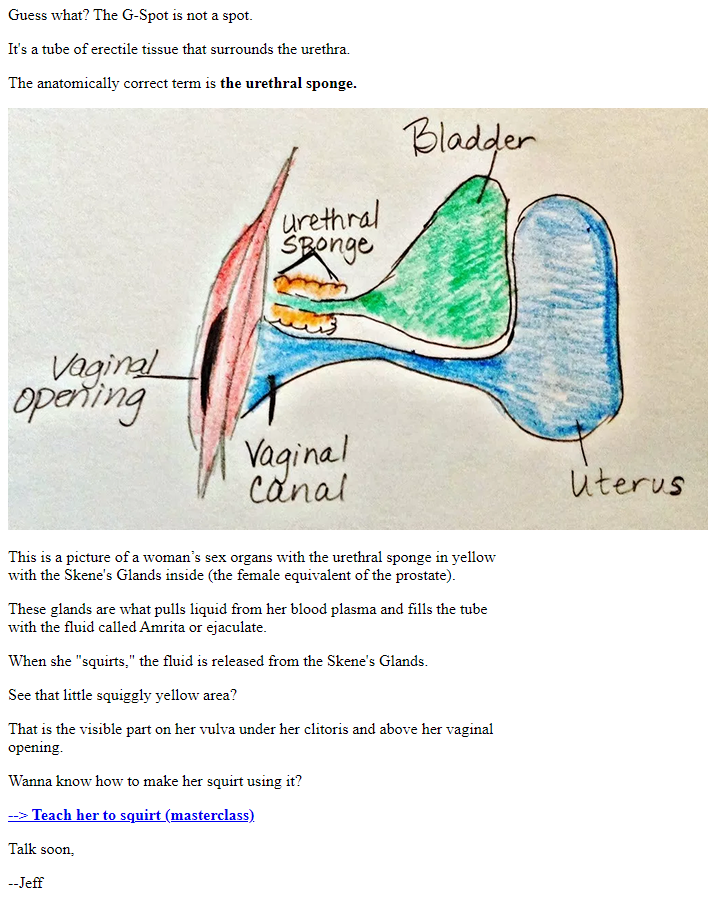 Guess what? The G-Spot is not a spot.
It's a tube of erectile tissue that surrounds the urethra.
The anatomically correct term is the urethral sponge.
Bladder
urethral
sponge
Vaginal
opening
Vaginal
canal
Uterus
This is a picture of a woman's sex organs with the urethral sponge in yellow
with the Skene's Glands inside (the female equivalent of the prostate).
These glands are what pulls liquid from her blood plasma and fills the tube
with the fluid called Amrita or ejaculate.
When she "squirts," the fluid is released from the Skene's Glands.
See that little squiggly yellow area?
That is the visible part on her vulva under her clitoris and above her vaginal
opening.
Wanna know how to make her squirt using it?
--> Teach her to squirt (masterclass)
Talk soon,
--Jeff